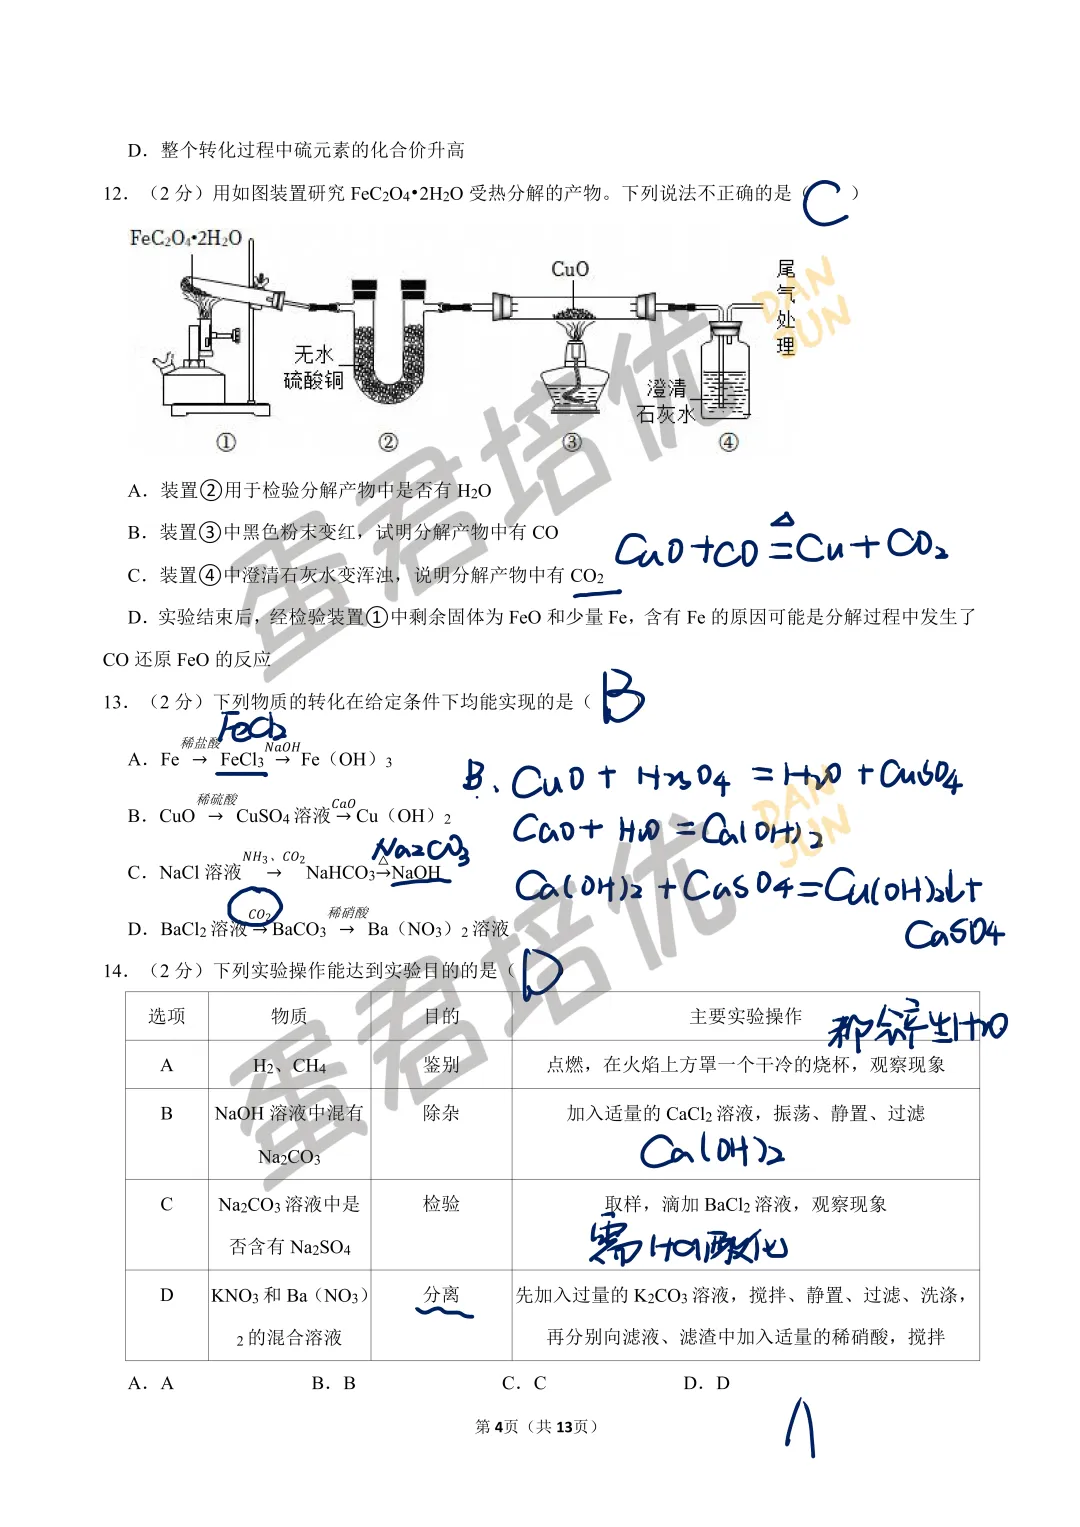 D．整个转化过程中硫元素的化合价升高
12．（2 分）用如图装置研究 FeC2O4•2H2O 受热分解的产物。下列说法不正确的是（ C ）
FeC2O4•2H2O
CuO
尾气处理
DAN
JUN
无水
硫酸铜
澄清
石灰水
① ② ③ ④
A．装置②用于检验分解产物中是否有 H2O
B．装置③中黑色粉末变红，试明分解产物中有 CO
CuO+CO ≜ Cu+CO2
C．装置④中澄清石灰水变浑浊，说明分解产物中有 CO2
D．实验结束后，经检验装置①中剩余固体为 FeO 和少量 Fe，含有 Fe 的原因可能是分解过程中发生了
CO 还原 FeO 的反应
13．（2 分）下列物质的转化在给定条件下均能实现的是（ B ）
FeCl2
A．Fe 稀盐酸→ FeCl3 NaOH→ Fe（OH）3
B、CuO + H2SO4 = H2O + CuSO4
B．CuO 稀硫酸→ CuSO4 溶液 CaO→ Cu（OH）2
CaO + H2O = Ca(OH)2
DAN
JUN
Na2CO3
C．NaCl 溶液 NH3、CO2→ NaHCO3 △→ NaOH
Ca(OH)2 + CuSO4 = Cu(OH)2↓+
CaSO4
D．BaCl2 溶液 CO2→ BaCO3 稀硝酸→ Ba（NO3）2 溶液
14．（2 分）下列实验操作能达到实验目的的是（ D
选项 物质 目的 主要实验操作
都会产生H2O
A H2、CH4 鉴别 点燃，在火焰上方罩一个干冷的烧杯，观察现象
B NaOH 溶液中混有 除杂 加入适量的 CaCl2 溶液，振荡、静置、过滤
Na2CO3
Ca(OH)2
C Na2CO3 溶液中是 检验 取样，滴加 BaCl2 溶液，观察现象
否含有 Na2SO4
需HCl酸化
D KNO3 和 Ba（NO3） 分离 先加入过量的 K2CO3 溶液，搅拌、静置、过滤、洗涤，
2 的混合溶液 再分别向滤液、滤渣中加入适量的稀硝酸，搅拌
A．A B．B C．C D．D
第 4页（共 13页）
蛋君培优
蛋君培优